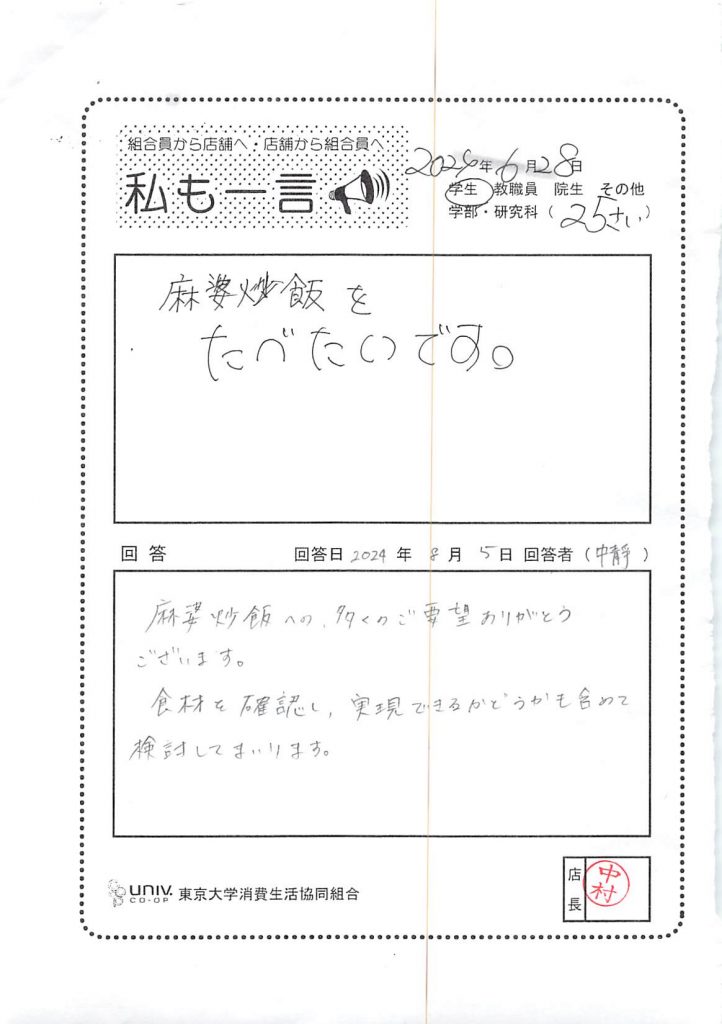 組合員から店舗へ・店舗から組合員へ
私も一言
2024年6月28日
学生 教職員 院生 その他
学部・研究科（25さい）
麻婆炒飯を
たべたいです。
回答 回答日 2024年 8月 5日 回答者（中静）
麻婆炒飯への、多くのご要望ありがとう
ございます。
食材を確認し、実現できるかどうかも含めて
検討してまいります。
UNIV.
CO-OP
東京大学消費生活協同組合
店長
中村